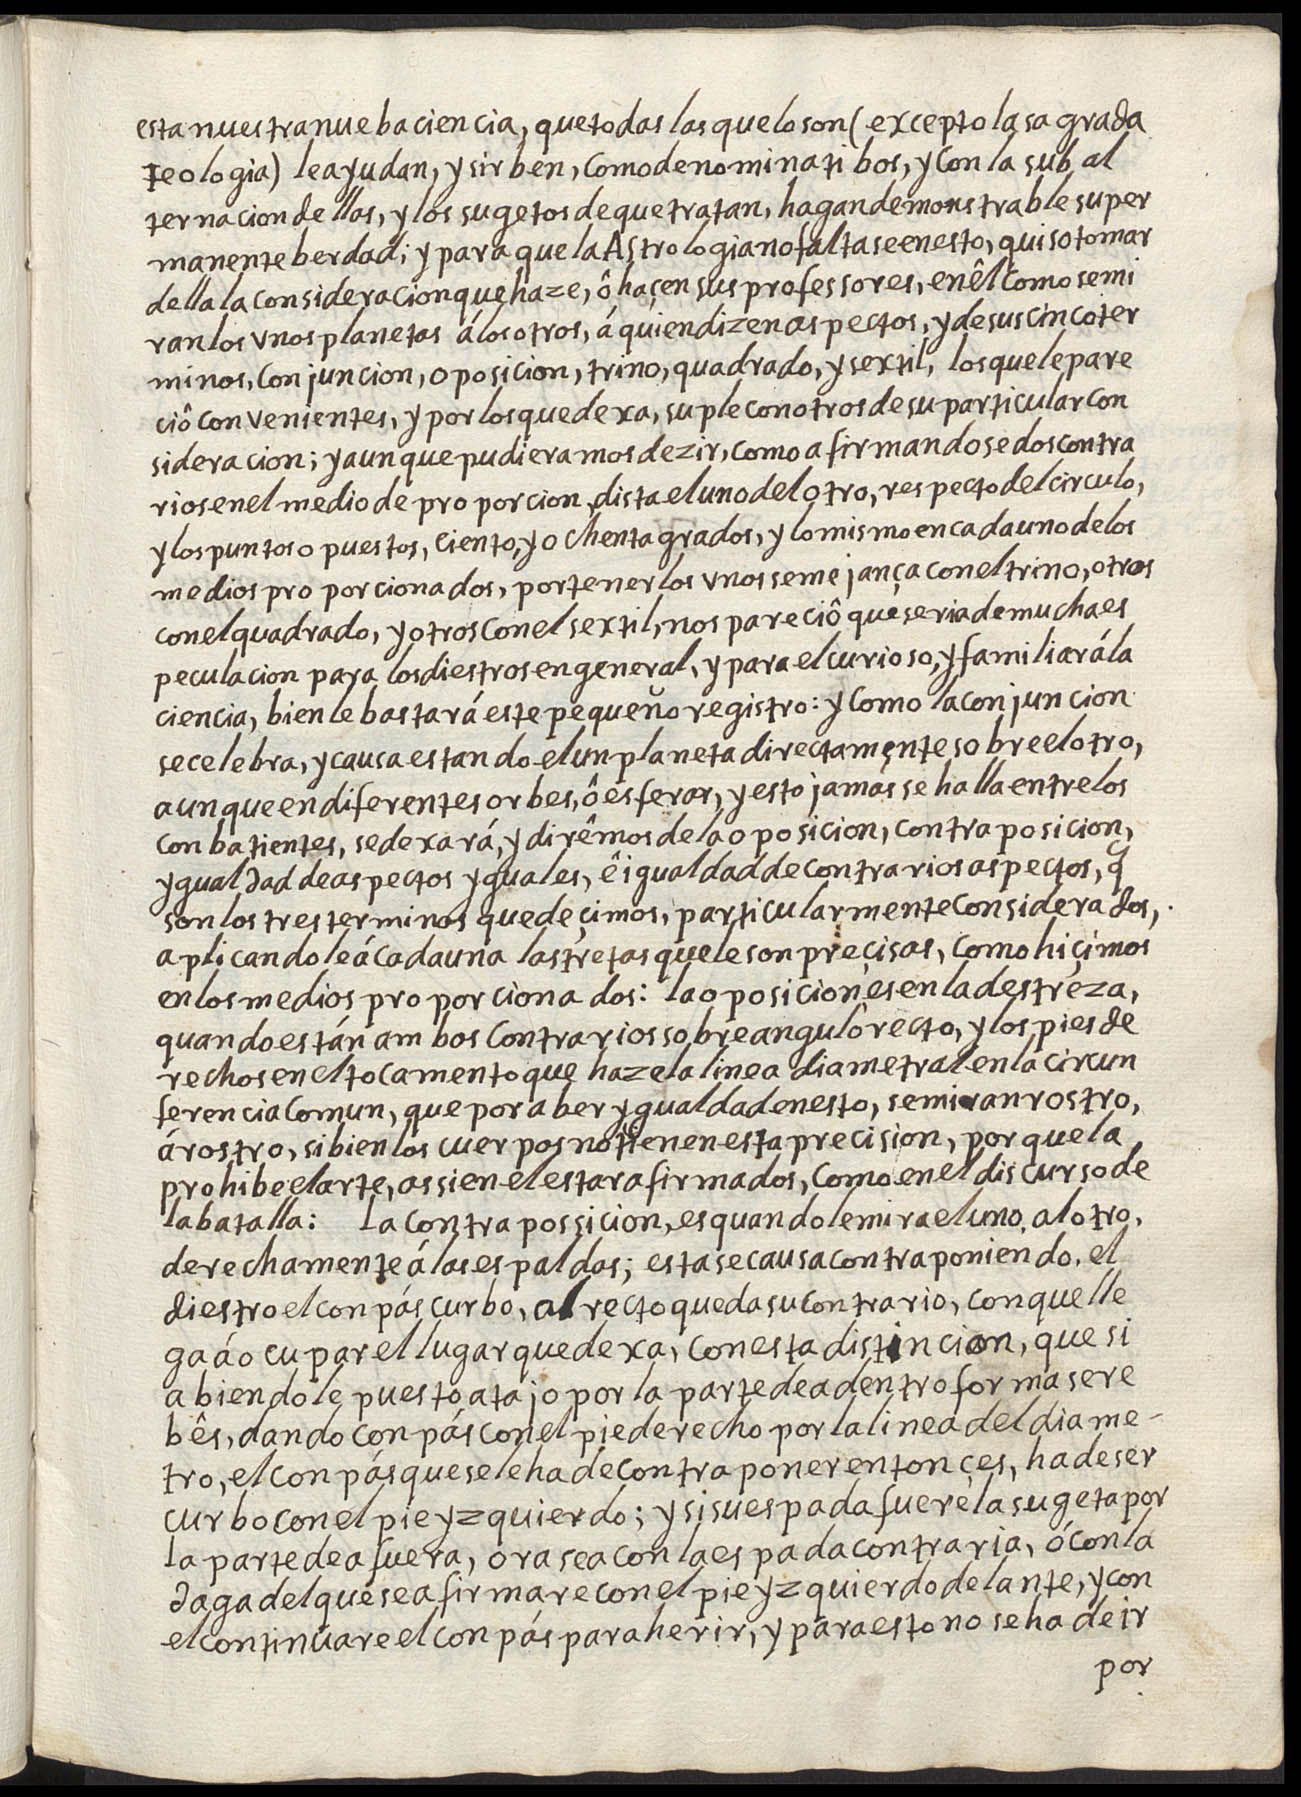 esta nuestra nueba ciencia, que todas las que lo son (excepto la sagrada
Teologia) le ayudan, y sirben, como denominatibos, y con la subal
ternacion dellas, y los sugetos de que tratan, hagan demonstrable su per
manente berdad; y para que la Astrologia no faltase en esto, quiso tomar
della la consideracion que haze, ô haçen sus professores, en êl como se mi
ran los vnos planetas á los otros, á quien dizen aspectos, y de sus cinco ter
minos, conjuncion, oposicion, trino, quadrado, y sextil, los que le pare
ciô convenientes, y por los que dexa, suple con otros de su particular con
sideracion; y aunque pudieramos dezir, como afirmandose dos contra
rios en el medio de proporcion, dista el uno del otro, respecto del circulo,
y los puntos opuestos, ciento, y ochenta grados, y lo mismo en cada uno de los
medios proporcionados, por tener los vnos semejança con el trino, otros
con el quadrado, y otros con el sextil, nos pareciô que seria de mucha es
peculacion para los diestros en general, y para el curioso, y familiar á la
ciencia, bien le bastará este pequeño registro: y como la conjuncion
se celebra, y causa estando el un planeta directamente sobre el otro,
aunque en diferentes orbes, ô esferas, y esto jamás se halla entre los
conbatientes, se dexará, y dirêmos de la oposicion, contraposicion,
ygualdad de aspectos yguales, ê igualdad de contrarios aspectos, q̃
son los tres terminos que deçimos, particularmente considerados,
aplicandole á cada una las tretas que le son preçisas, como hiçimos
en los medios proporcionados: la oposicion, es en la destreza,
quando están ambos contrarios sobre angulo recto, y los pies de
rechos en el tocamento que haze la linea diametral en la circun
ferencia comun, que por aber ygualdad en esto, se miran rostro,
á rostro, si bien los cuerpos no tienen esta precision, porque la
prohibe el arte, assi en el estar afirmados, como en el discurso de
la batalla: La contrapossicion, es quando le mira el uno al otro,
derechamente á las espaldas; esta se causa contraponiendo, el
diestro el conpás curbo, al recto que da su contrario, con que lle
ga á ocupar el lugar que dexa, con esta distincion, que si
abiendole puesto atajo por la parte de adentro formase re
bês, dando conpás con el pie derecho por la linea del diame-
tro, el conpás que se le ha de contraponer entonçes, ha de ser
curbo con el pie yzquierdo; y si su espada fuere la sugeta por
la parte de afuera, ora sea con la espada contraria, ó con la
daga del que se afirmare con el pie yzquierdo delante, y con
el continuare el conpás para herir, y para esto no se ha de ir
por